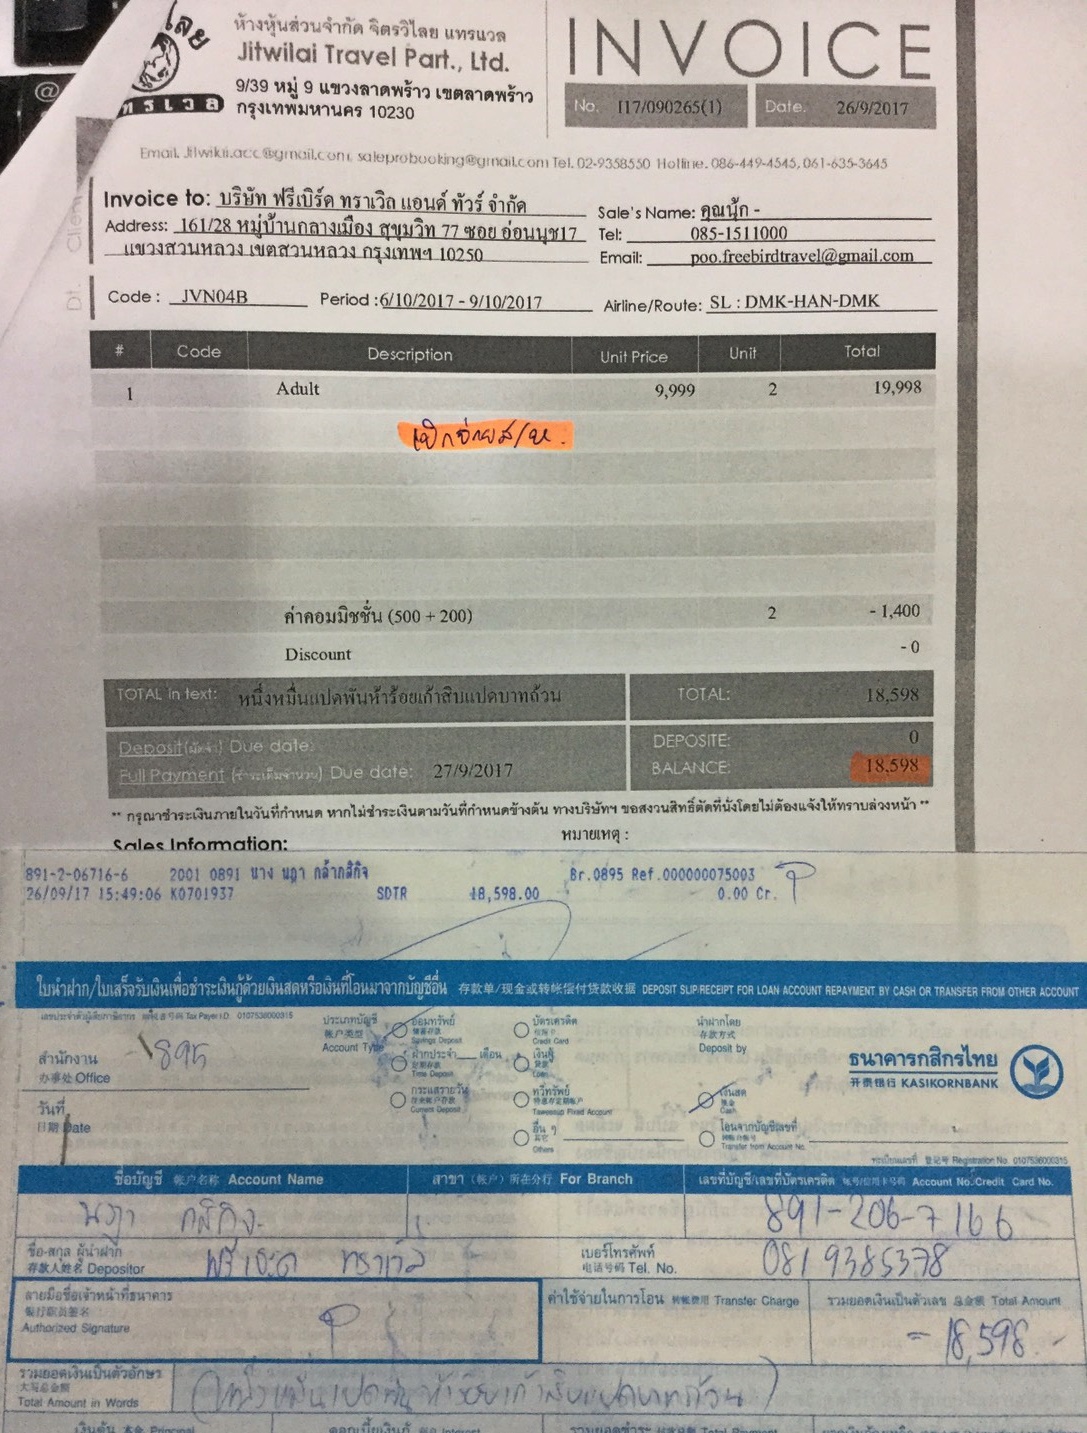 ห้างหุ้นส่วนจำกัด จิตรวิไลย แทรแวล
Jitwilai Travel Part., Ltd.
9/39 หมู่ 9 แขวงลาดพร้าว เขตลาดพร้าว
กรุงเทพมหานคร 10230
INVOICE
No. I17/090265(1) Date. 26/9/2017
Email. Jitwilai.acc@gmail.com, saleprobooking@gmail.com Tel. 02-9358550 Hotline. 086-449-4545, 061-635-3645
Invoice to: บริษัท ฟรีเบิร์ด ทราเวิล แอนด์ ทัวร์ จำกัด
Address: 161/28 หมู่บ้านกลางเมือง สุขุมวิท 77 ซอย อ่อนนุช17
แขวงสวนหลวง เขตสวนหลวง กรุงเทพฯ 10250
Sale's Name: คุณนุ้ก -
Tel: 085-1511000
Email: poo.freebirdtravel@gmail.com
Code : JVN04B Period : 6/10/2017 - 9/10/2017 Airline/Route: SL : DMK-HAN-DMK
# Code Description Unit Price Unit Total
1 Adult 9,999 2 19,998
ค่าคอมมิชชั่น (500 + 200) 2 - 1,400
Discount - 0
TOTAL in text: หนึ่งหมื่นแปดพันห้าร้อยเก้าสิบแปดบาทถ้วน TOTAL: 18,598
Deposit(มัดจำ) Due date: DEPOSITE: 0
Full Payment (ชำระเต็มจำนวน) Due date: 27/9/2017 BALANCE: 18,598
** กรุณาชำระเงินภายในวันที่กำหนด หากไม่ชำระเงินตามวันที่กำหนดข้างต้น ทางบริษัทฯ ขอสงวนสิทธิ์ตัดที่นั่งโดยไม่ต้องแจ้งให้ทราบล่วงหน้า **
Sales Information: หมายเหตุ :
891-2-06716-6 2001 0891 นาง นฎา กล้ากสิกิจ Br.0895 Ref.000000075003
26/09/17 15:49:06 K0701937 SDTR 18,598.00 0.00 Cr.
ใบนำฝาก/ใบเสร็จรับเงินเพื่อชำระเงินกู้ด้วยเงินสดหรือเงินที่โอนมาจากบัญชีอื่น 存款单/现金或转帐偿付贷款收据 DEPOSIT SLIP/RECEIPT FOR LOAN ACCOUNT REPAYMENT BY CASH OR TRANSFER FROM OTHER ACCOUNT
Tax Payer I.D. 0107536000315
สำนักงาน 895
办事处 Office
วันที่
日期 Date
ประเภทบัญชี
帐户类型
Account Type
ออมทรัพย์
Savings Deposit
ฝากประจำ เดือน
Time Deposit
กระแสรายวัน
Current Deposit
บัตรเครดิต
Credit Card
เงินกู้
Loan
ทวีทรัพย์
Taweesup Fixed Account
อื่น ๆ
Others
นำฝากโดย
存款方式
Deposit by
เงินสด
现金
Cash
โอนจากบัญชีเลขที่
Transfer from Account No.
ธนาคารกสิกรไทย
开泰银行 KASIKORNBANK
ทะเบียนเลขที่ 登记号 Registration No. 0107536000315
ชื่อบัญชี 帐户名称 Account Name สาขา (帐户) 所在分行 For Branch เลขที่บัญชี/เลขที่บัตรเครดิต Account No./Credit Card No.
นฎา กสิกิจ 891-206-7166
ชื่อ-สกุล ผู้นำฝาก
存款人姓名 Depositor ฟรีเบิด ทราเวิล
เบอร์โทรศัพท์
电话号码 Tel. No. 0819385378
ลายมือชื่อเจ้าหน้าที่ธนาคาร
银行职员签名
Authorized Signature
ค่าใช้จ่ายในการโอน 转帐费用 Transfer Charge
รวมยอดเงินเป็นตัวเลข 总金额 Total Amount
= 18,598.-
รวมยอดเงินเป็นตัวอักษร
大写总金额
Total Amount in Words (หนึ่งหมื่นแปดพันห้าร้อยเก้าสิบแปดบาทถ้วน)